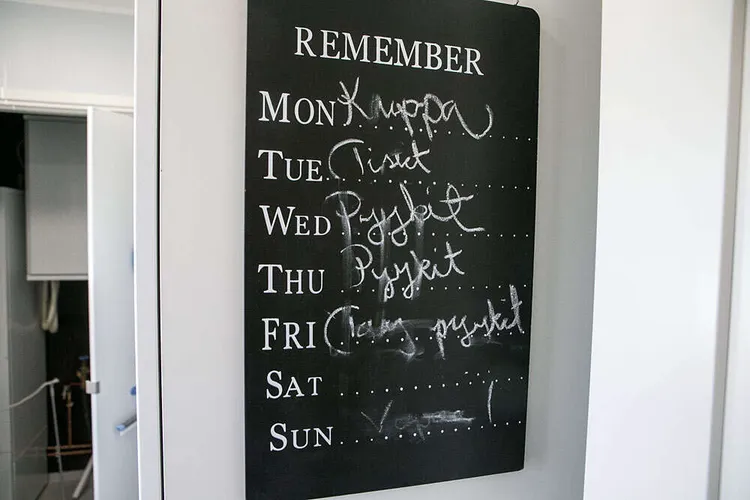 REMEMBER
MON Kroppa
TUE Tiscit
WED Pyykit
THU Pyykit
FRI Taas pyykit
SAT
SUN